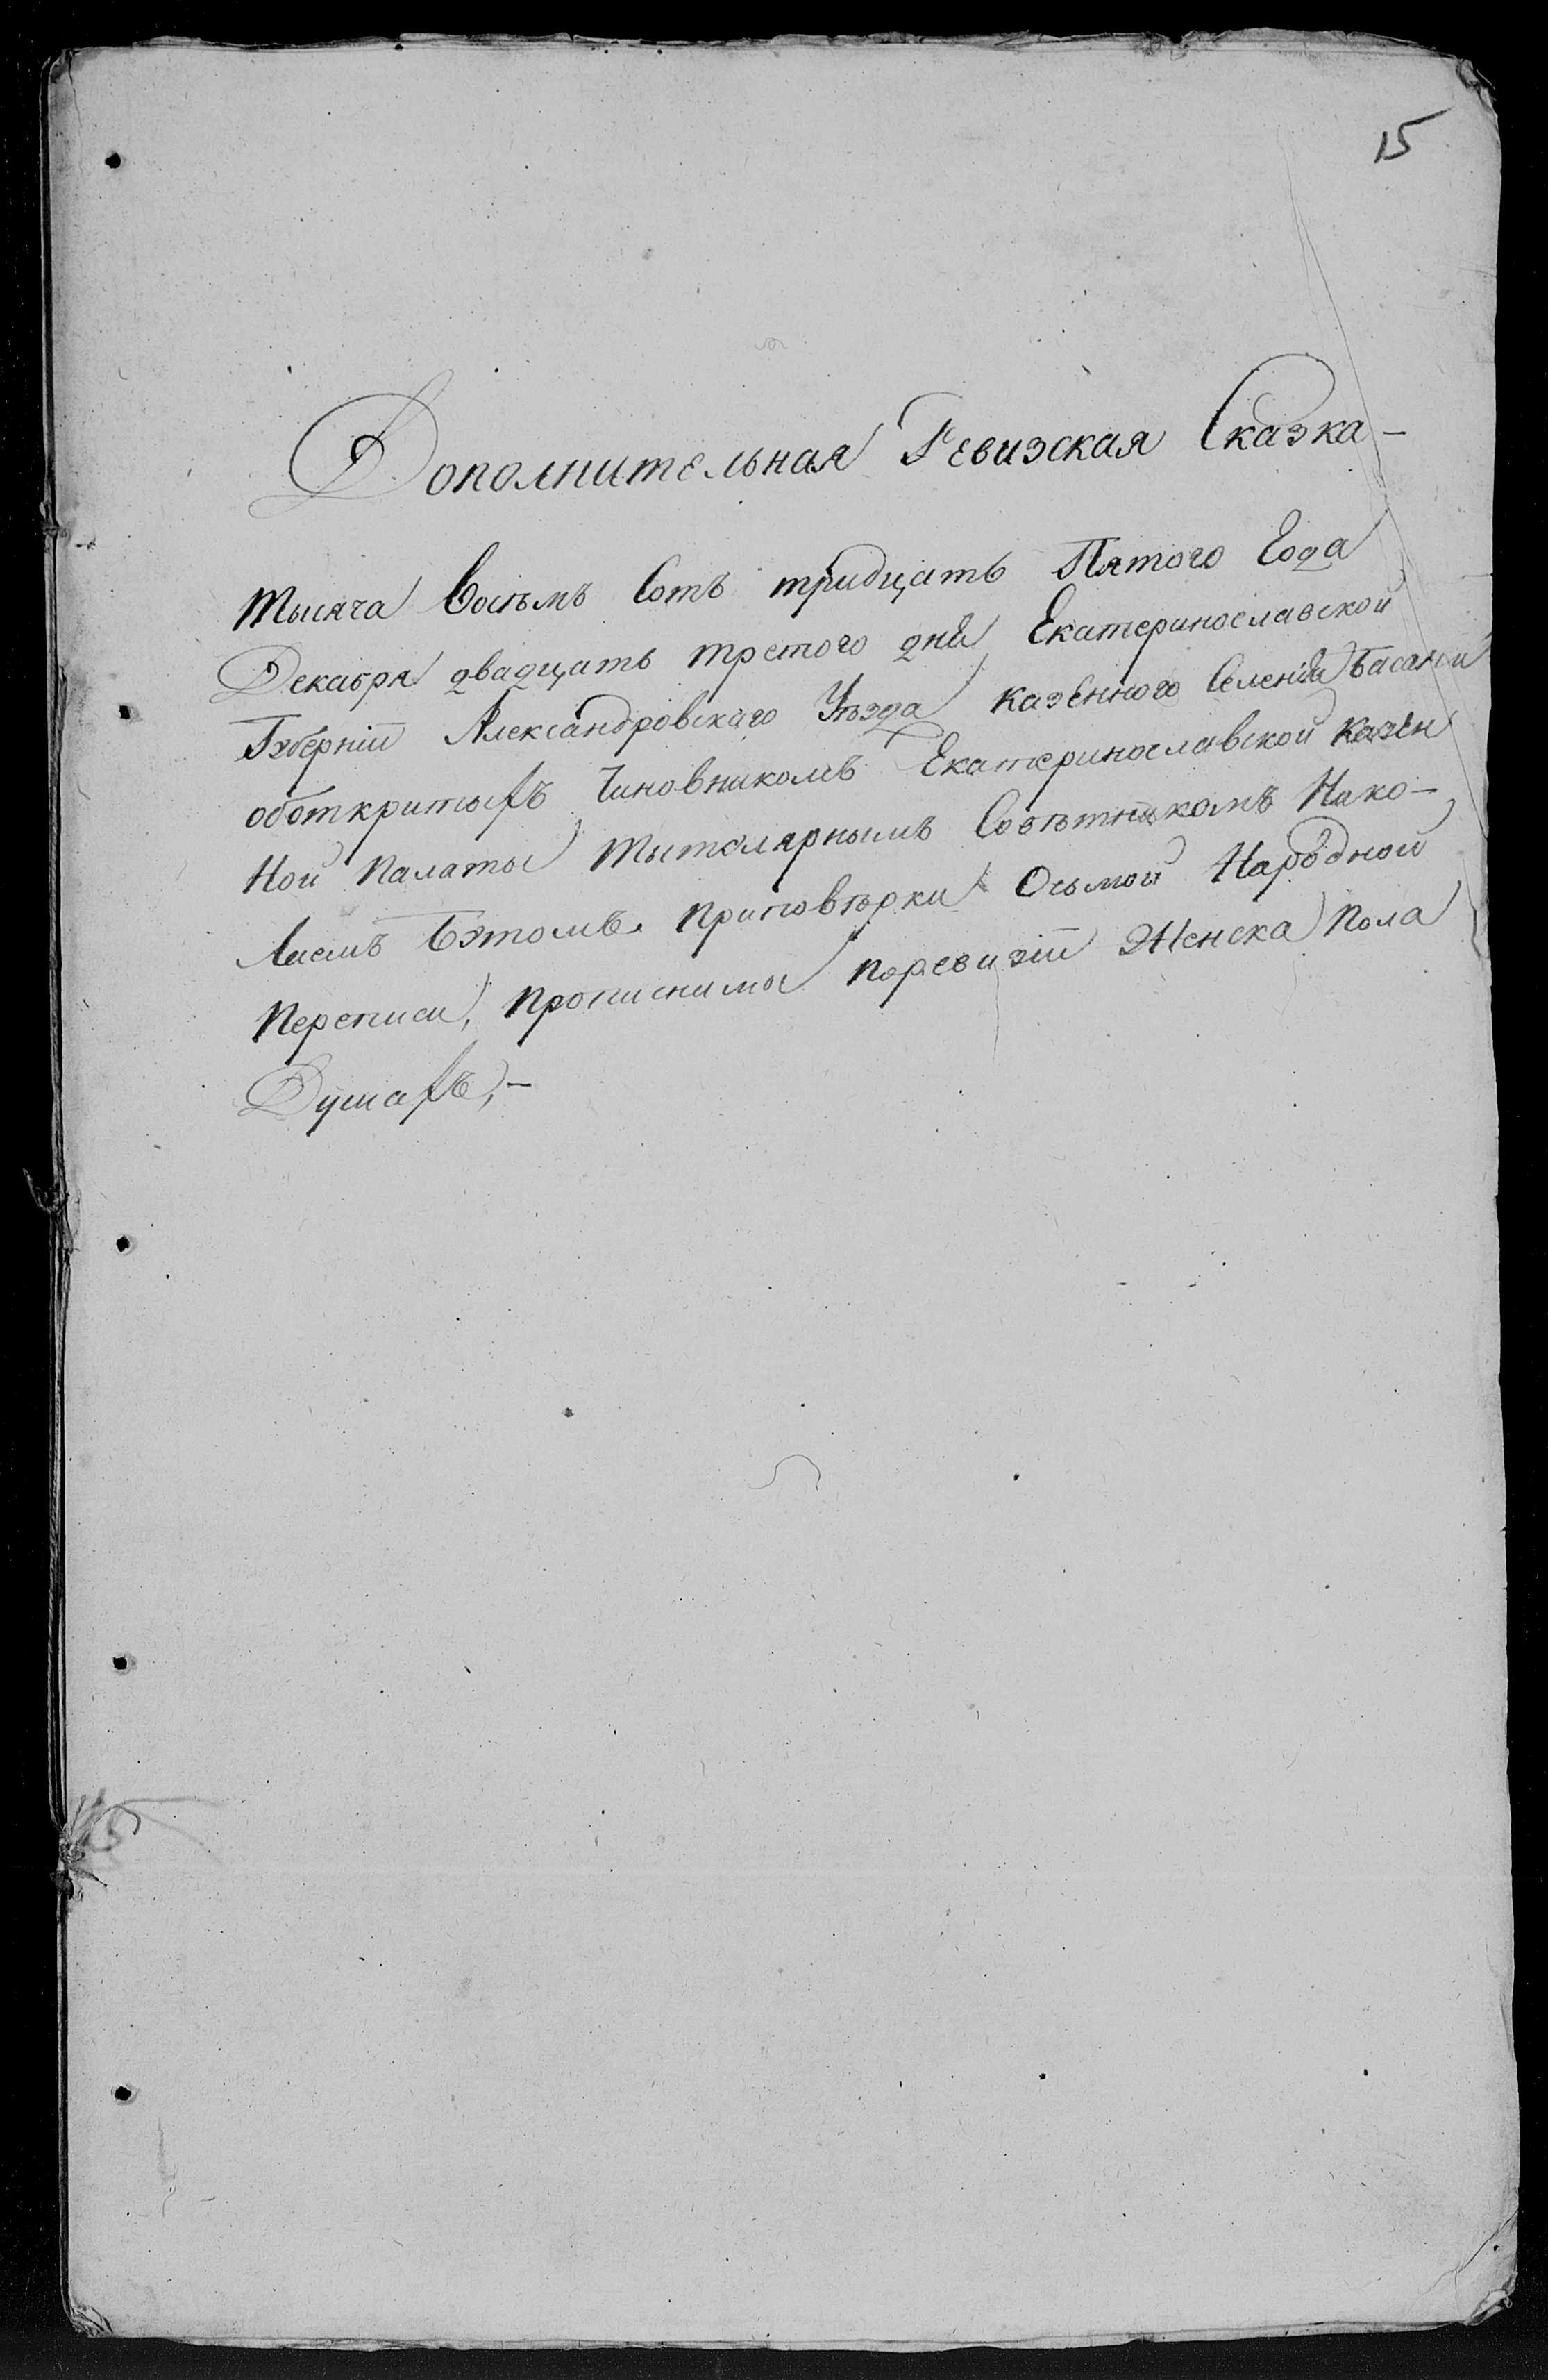 15
Дополнительная Ревизская Сказка —
тысяча Восѣмъ Сотъ тридцать Пятого Года
Декабря двадцать третого дня, Екатеринославской
Губерніи Александровскаго Уѣзда казенного Селенія Басани
оботкритыхъ Чиновникомъ Екатеринославской Казен
Ной Палаты тытолярнымъ Совѣтникомъ Нико —
лаемъ Бэтомъ. приповѣрки Осьмой Народной
Переписи, прописными поревизіи Женска Пола
Душахъ, —